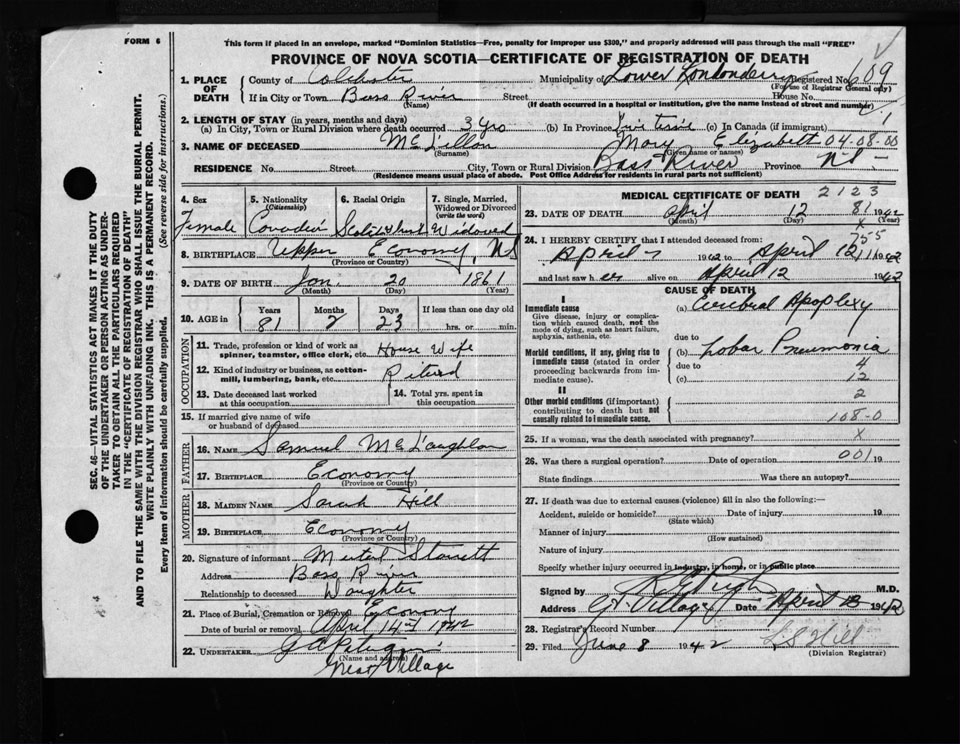 FORM 6
This form if placed in an envelope, marked "Dominion Statistics—Free, penalty for improper use $300," and properly addressed will pass through the mail "FREE"
PROVINCE OF NOVA SCOTIA—CERTIFICATE OF REGISTRATION OF DEATH
1. PLACE OF DEATH County of Colchester Municipality of Lower Londonderry Registered No. 609
(For use of Registrar General only)
If in City or Town Bass River Street House No.
(Name) (If death occurred in a hospital or institution, give the name instead of street and number)
2. LENGTH OF STAY (in years, months and days)
(a) In City, Town or Rural Division where death occurred 3 yrs (b) In Province (c) In Canada (if immigrant)
3. NAME OF DECEASED Mary Elizabeth 04-08-00
(Surname) (Given name or names)
RESIDENCE No. Street City, Town or Rural Division Bass River Province NS
(Residence means usual place of abode. Post Office Address for residents in rural parts not sufficient)
4. Sex 5. Nationality (Citizenship) 6. Racial Origin 7. Single, Married, Widowed or Divorced (write the word)
Female Widowed
8. BIRTHPLACE Upper Economy, NS
(Province or Country)
9. DATE OF BIRTH Jan. 20 1861
(Month) (Day) (Year)
10. AGE in Years Months Days If less than one day old
81 2 23 hrs. or min.
OCCUPATION
11. Trade, profession or kind of work as spinner, teamster, office clerk, etc. House Wife
12. Kind of industry or business, as cotton-mill, lumbering, bank, etc. Retired
13. Date deceased last worked at this occupation 14. Total yrs. spent in this occupation
15. If married give name of wife or husband of deceased
FATHER
16. NAME Samuel McLaughlan
17. BIRTHPLACE Economy
(Province or Country)
MOTHER
18. MAIDEN NAME Sarah Hill
19. BIRTHPLACE Economy
(Province or Country)
20. Signature of informant
Address Bass River
Relationship to deceased Daughter
21. Place of Burial, Cremation or Removal Economy
Date of burial or removal April 14th 1942
22. UNDERTAKER
(Name and address)
Great Village
MEDICAL CERTIFICATE OF DEATH 2123
23. DATE OF DEATH April 12 1942
(Month) (Day)
24. I HEREBY CERTIFY that I attended deceased from:
April 7 1942 to April 12 1942
and last saw her alive on April 12 1942
CAUSE OF DEATH
I
Immediate cause
Give disease, injury or complication which caused death, not the mode of dying, such as heart failure, asphyxia, asthenia, etc.
(a) Cerebral Apoplexy
due to
Morbid conditions, if any, giving rise to immediate cause (stated in order proceeding backwards from immediate cause).
(b) Lobar Pneumonia
due to 4
(c) 12
II
Other morbid conditions (if important) contributing to death but not causally related to immediate cause.
2
108-0
25. If a woman, was the death associated with pregnancy? X
26. Was there a surgical operation? Date of operation 001 19
State findings Was there an autopsy?
27. If death was due to external causes (violence) fill in also the following:—
Accident, suicide or homicide? Date of injury 19
(State which)
Manner of injury
(How sustained)
Nature of injury
Specify whether injury occurred in industry, in home, or in public place
Signed by M.D.
Address Gt. Village Date April 13 1942
28. Registrar's Record Number
29. Filed June 8 1942 Hill
(Division Registrar)
SEC. 46—VITAL STATISTICS ACT MAKES IT THE DUTY
OF THE UNDERTAKER OR PERSON ACTING AS UNDER-
TAKER TO OBTAIN ALL THE PARTICULARS REQUIRED
IN THE "CERTIFICATE OF REGISTRATION OF DEATH"
AND TO FILE THE SAME WITH THE DIVISION REGISTRAR WHO SHALL ISSUE THE BURIAL PERMIT.
WRITE PLAINLY WITH UNFADING INK. THIS IS A PERMANENT RECORD.
Every item of information should be carefully supplied. (See reverse side for instructions.)